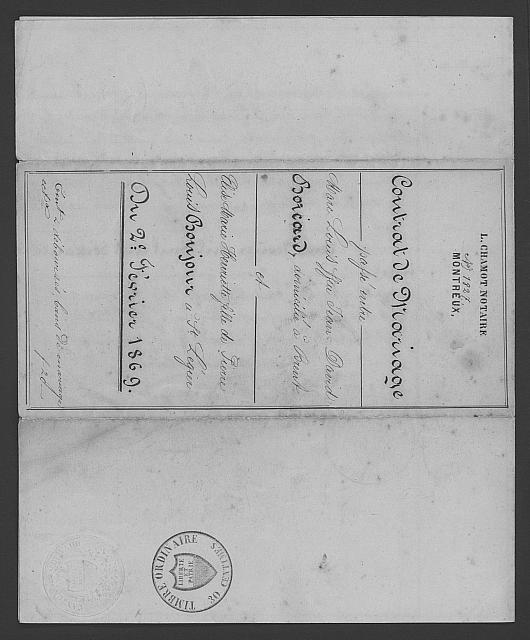 L. CHAMOT NOTAIRE
N° 1927.
MONTREUX.
Contrat de Mariage
passé entre
Marc Louis feu Jean David
Boicard, domicilié à Brent
et
Henriette fille de Pierre
Louis Bonjour à St Legier
Du 2e Février 1869.
TIMBRE ORDINAIRE
20 CENTIMES
LIBERTÉ
ET
PATRIE